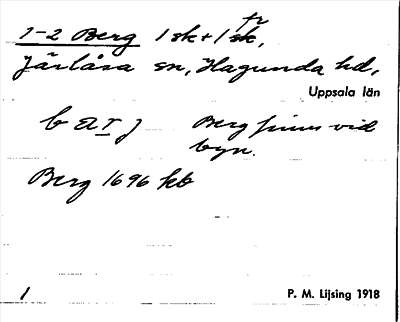 1-2 Berg 1 sk + 1 fr sk,
Järlåsa sn, Hagunda hd,
Uppsala län
Berg finns vid
byn.
Berg 1696 kb
1
P. M. Lijsing 1918